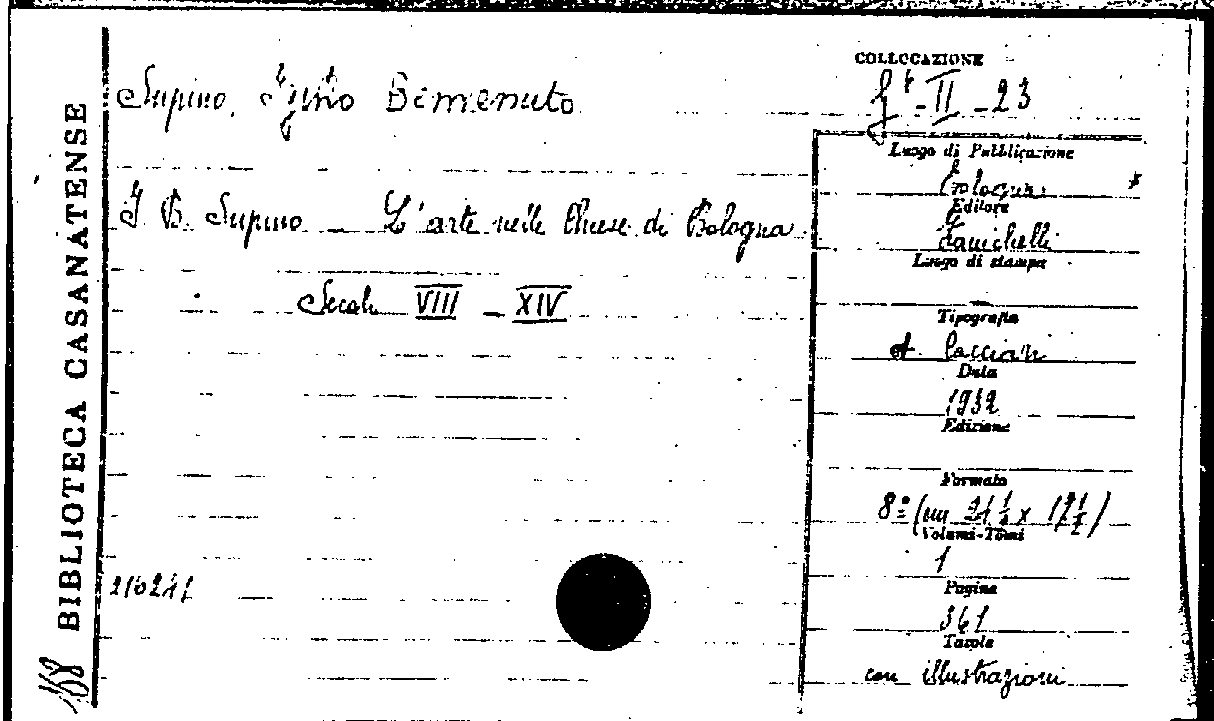 BIBLIOTECA CASANATENSE
Supino, Igino Benvenuto
I. B. Supino - L'arte nelle Chiese di Bologna
Secoli VIII - XIV
COLLOCAZIONE
II - 23
Luogo di Pubblicazione
Bologna
Editore
Zanichelli
Luogo di stampa
Tipografia
A. Cacciari
Data
1932
Edizione
Formato
8º (cm
Volumi-Tomi
1
Pagine
361
Tavole
con illustrazioni